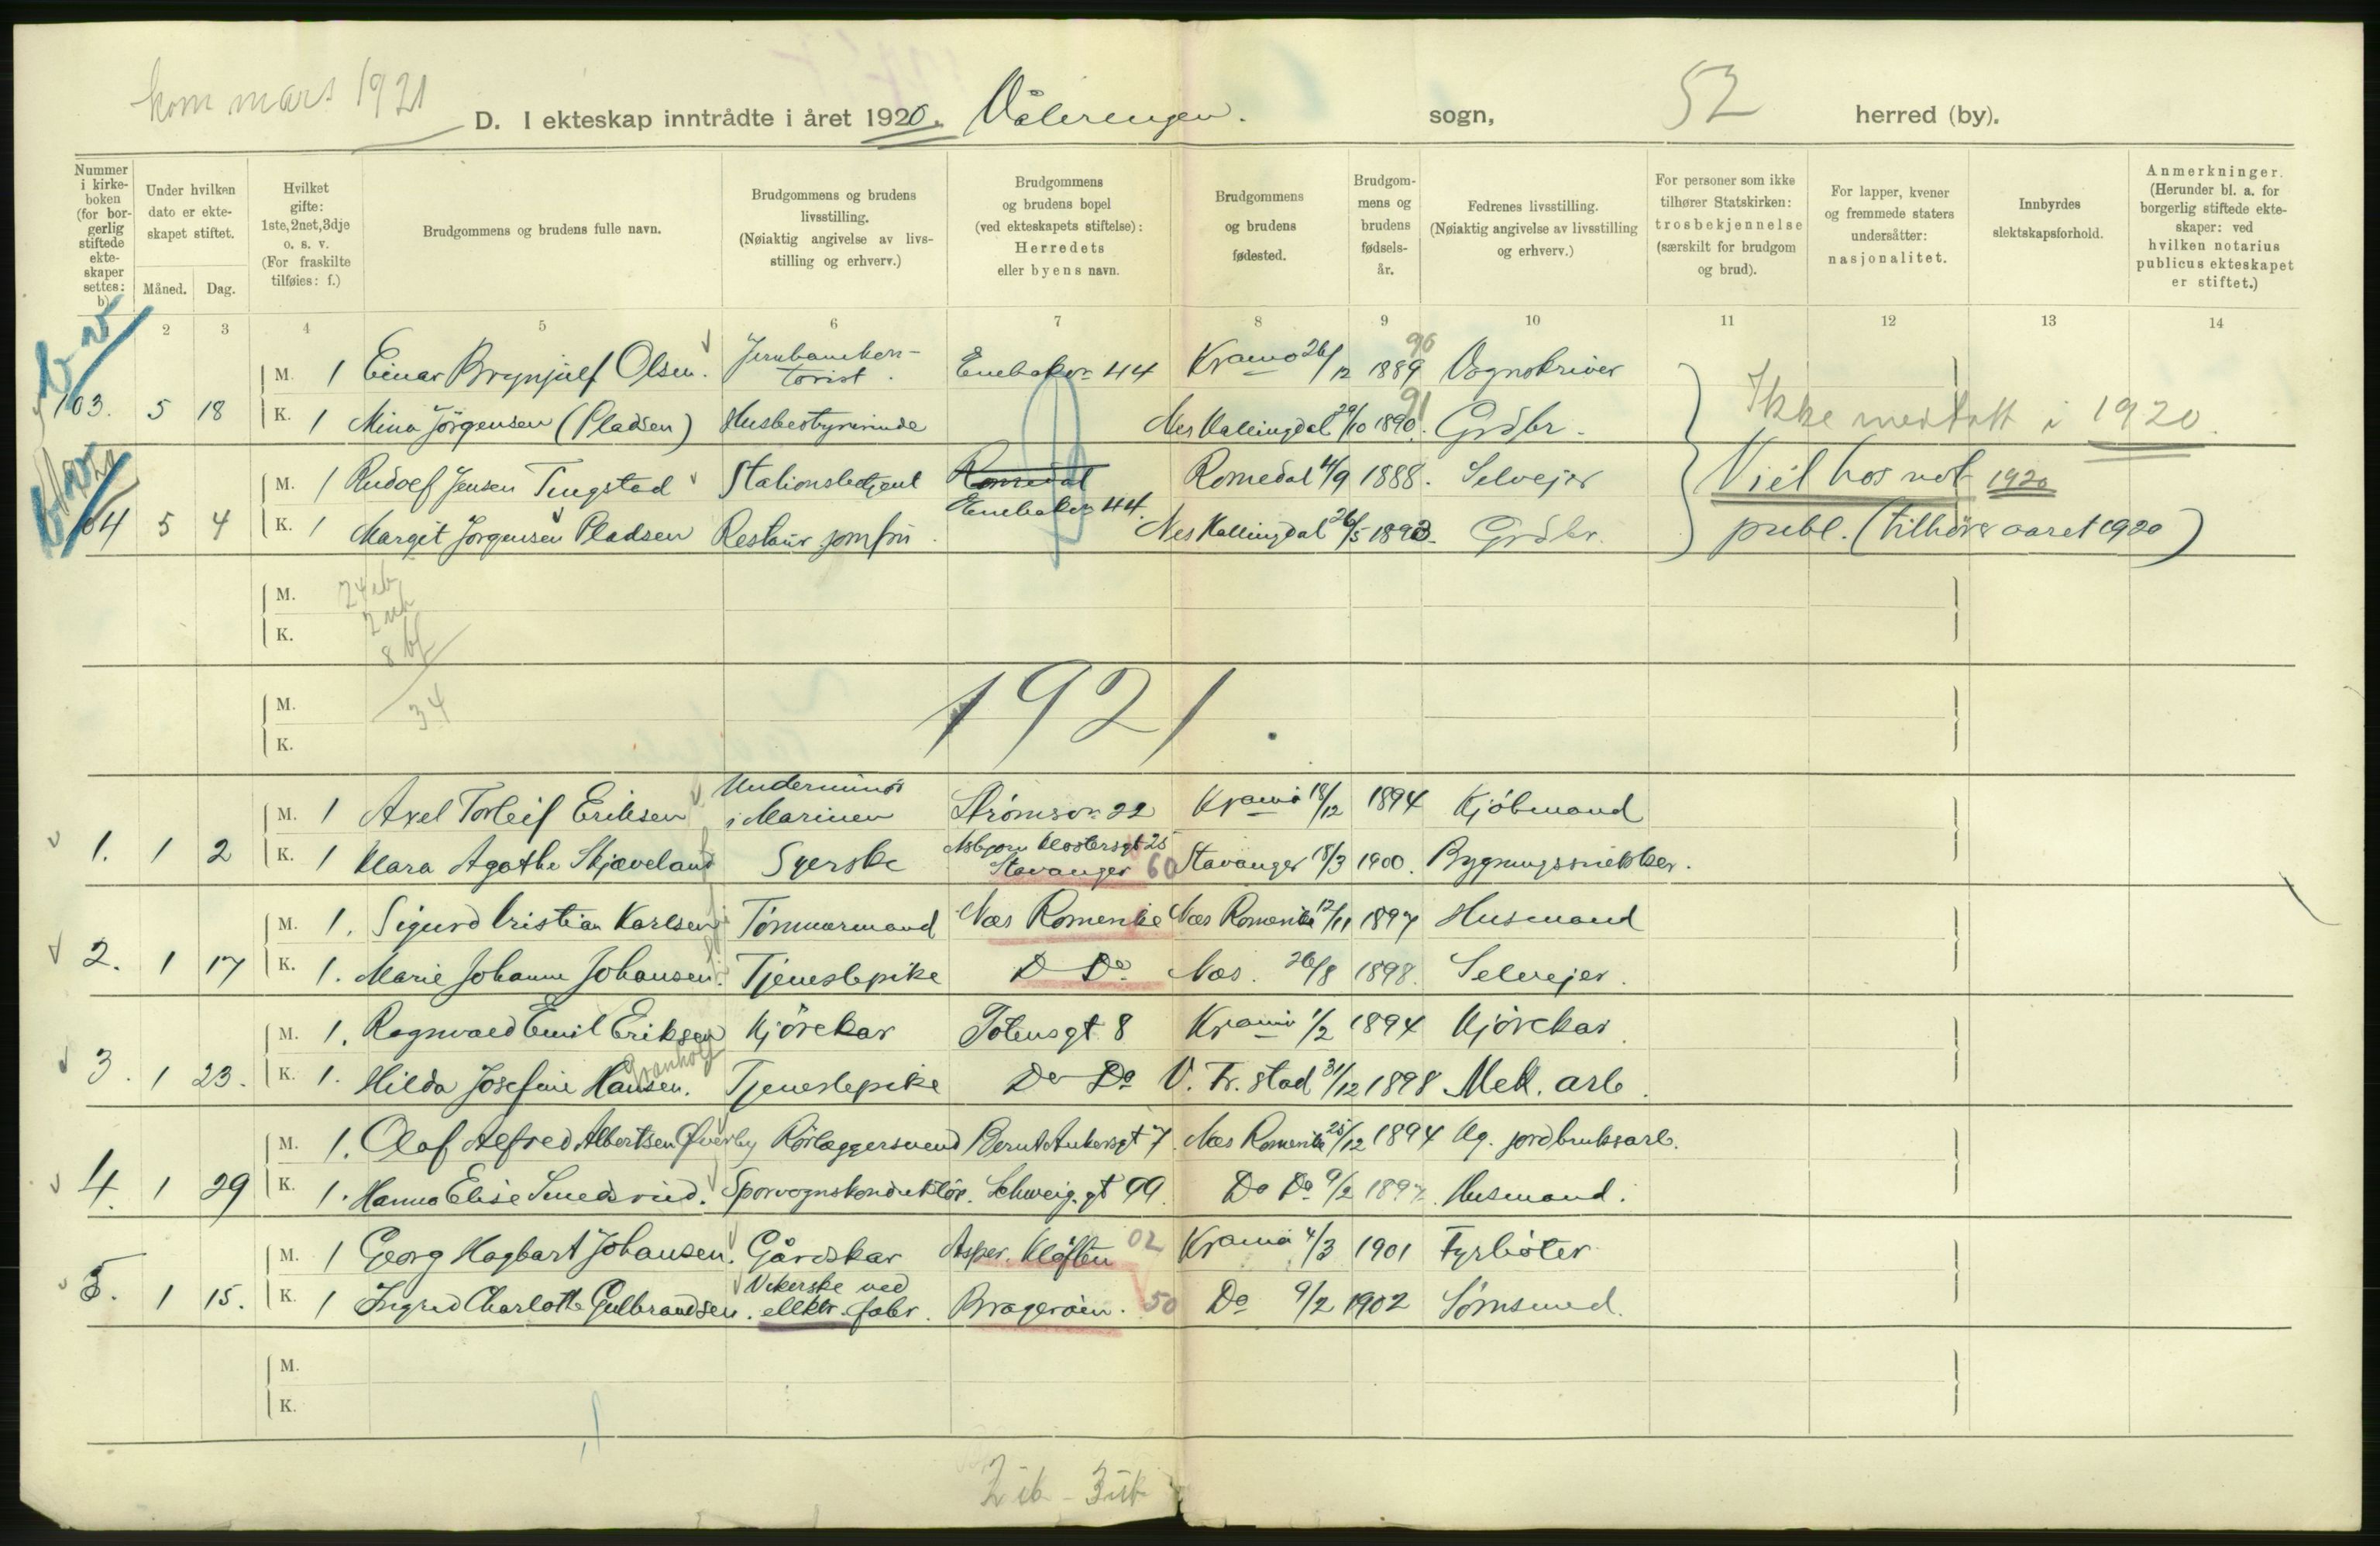 kom mars 1921
D. I ekteskap inntrådte i året 1920. Vålerengen. sogn, 52 herred (by).
Nummer i kirkeboken (for borgerlig stiftede ekteskaper settes: b)
Under hvilken dato er ekteskapet stiftet.
Måned. Dag.
Hvilket gifte: 1ste, 2net, 3dje o. s. v. (For fraskilte tilføies: f.)
Brudgommens og brudens fulle navn.
Brudgommens og brudens livsstilling. (Nøiaktig angivelse av livsstilling og erhverv.)
Brudgommens og brudens bopel (ved ekteskapets stiftelse): Herredets eller byens navn.
Brudgommens og brudens fødested.
Brudgommens og brudens fødselsår.
Fedrenes livsstilling. (Nøiaktig angivelse av livsstilling og erhverv.)
For personer som ikke tilhører Statskirken: trosbekjennelse (særskilt for brudgom og brud).
For lapper, kvener og fremmede staters undersåtter: nasjonalitet.
Innbyrdes slektskapsforhold.
Anmerkninger. (Herunder bl. a. for borgerlig stiftede ekteskaper: ved hvilken notarius publicus ekteskapet er stiftet.)
2 3 4 5 6 7 8 9 10 11 12 13 14
M. 1 Einar Brynjulf Olsen. Jernbanekontorist. Enebakv. 44 Krania 26/12 1889 90 Vognskriver
103. 5 18 K. 1 Mina Jörgensen (Pladsen) Husbestyrerinde Nes Hallingdal 29/10 1890. 91 Grdbr.
Ikke medtatt i 1920.
M. 1 Rudolf Jensen Tingstad Stationsbetjent Romedal Enebakv. 44. Romedal 4/9 1888. Selvejer
104 5 4 K. 1 Margit Jörgensen Pladsen Restaur. jomfru. Nes Hallingdal 26/5 1893. Grdbr.
Viet hos not. 1920
publ. (tilhörer aaret 1920)
M.
K.
24 ib
2 uk
8 bf
34
M.
K.
1921.
M. 1 Axel Torleif Eriksen Underminör i Marinen Strömsv. 22 Krania 18/12 1894 Kjöbmand
1. 1 2 K. 1 Klara Agathe Skjæveland Syerske Asbjörn Klostersgt 25 Stavanger 60 Stavanger 18/3 1900. Bygningssnekker.
M. 1. Sigurd Cristian Karlsen Tömmermand Næs Romerike Næs Romerike 12/11 1897 Husmand
2. 1 17 K. 1. Marie Johanne Johansen. Tjenestepike Do Do Næs. 26/8 1898. Selvejer.
M. 1. Ragnvald Emil Eriksen Kjörekar Totensgt 8 Krania 1/2 1894 Kjörekar.
3. 1 23. K. 1. Hilda Josefine Hansen. Granholt Tjenestepike Do Do V. Fr. stad 31/12 1898 Mek. arb.
M. 1. Olaf Alfred Albertsen Øverby Rörlæggersvend Bernt Ankersgt 7. Næs Romerike 25/12 1894 Kg. jordbruksarb.
4. 1 29 K. 1. Hanna Elise Smedsrud. Sporvognskonduktör. Schweig. gt 99. Do Do 9/2 1897. Husmand.
M. 1 Georg Hagbart Johansen. Gårdskar Asper. Klöften 02 Krania 4/3 1901 Fyrböter
5. 1 15. K. 1 Ingrid Charlotte Gulbrandsen. Vikerske ved elektr. fabr. Bragerøen. 50 Do 9/2 1902 Sömsmed.
M.
K.
2 ib - 3 uk